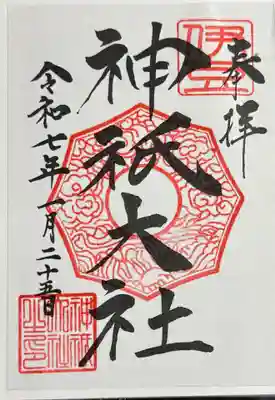 奉拝
伊豆
神祇大社
令和七年一月二十五日